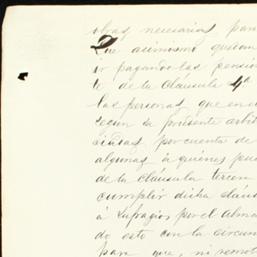 obras necesarias para
2 Que asimismo quedan
ir pagando las pension
te de la Cláusula 4ª
las personas que en
segun su prudente arbit
por cuenta de
algunas á quienes pue
de la cláusula tercera
cumplir dicha cláus
á sufragios por el alma
do esto con la circun
para que, ni remot